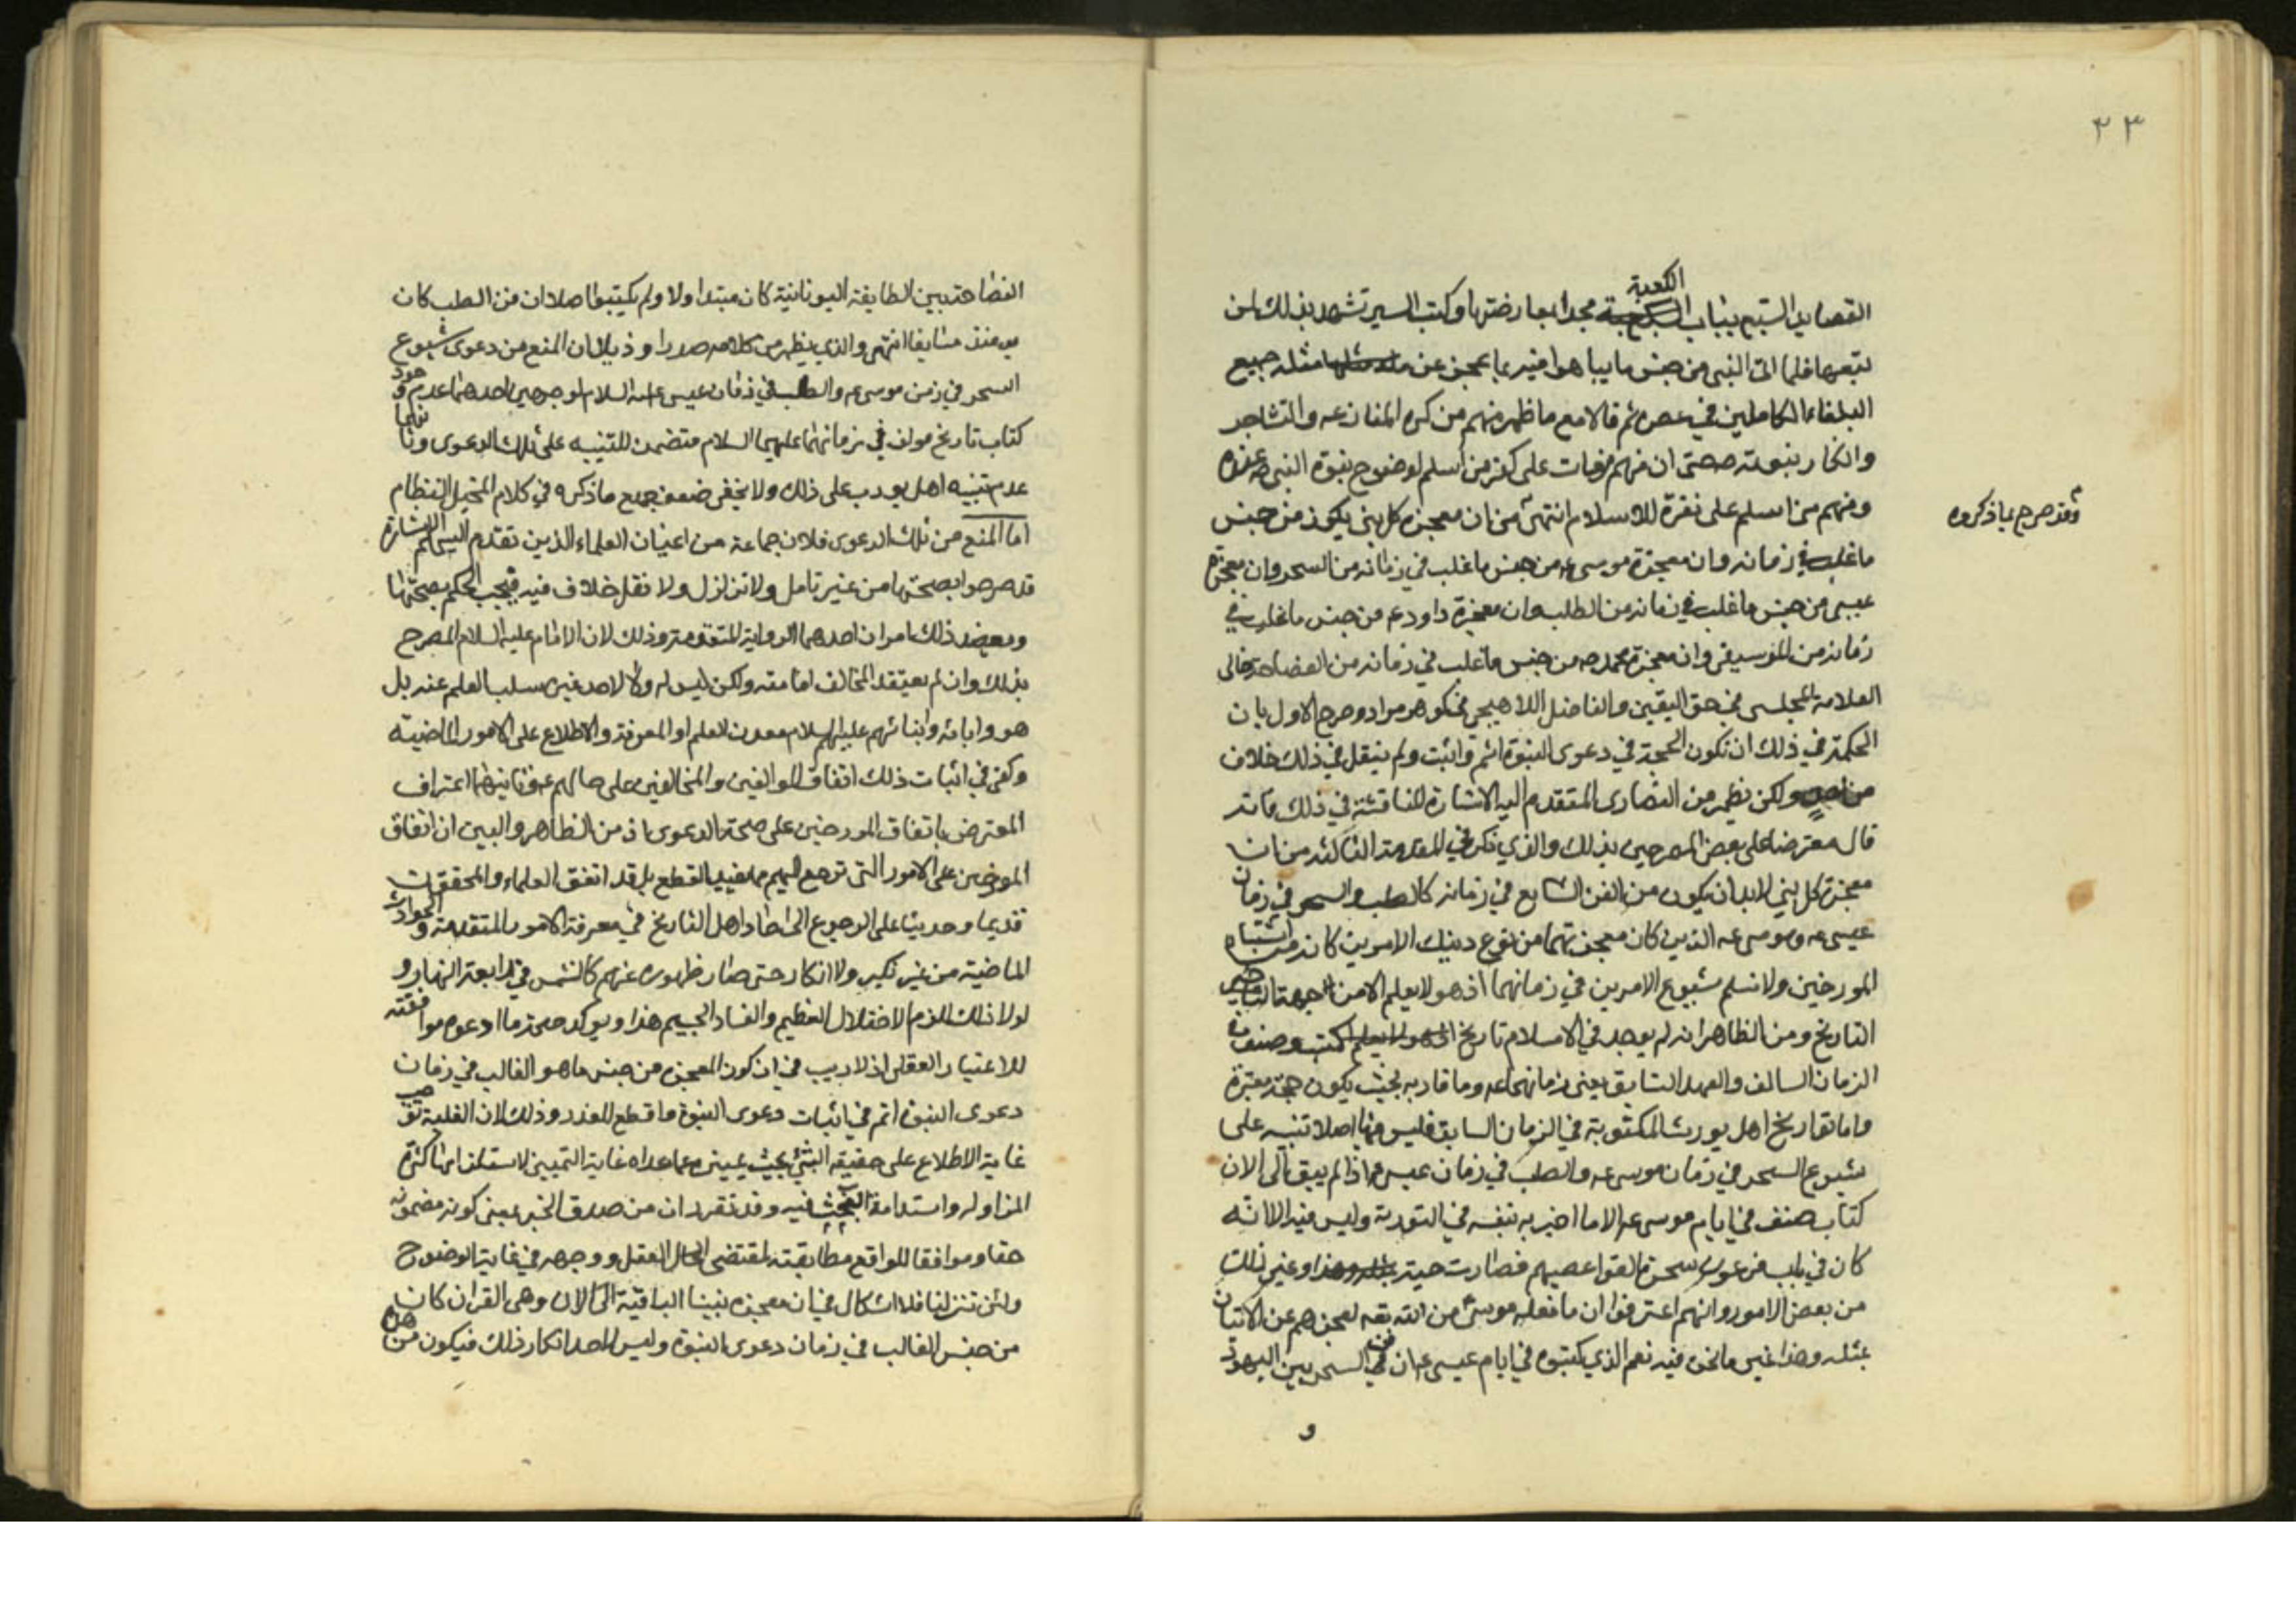 ٢٣
الكعبة
القصايد السبع بباب مجدا لمعارضتها وكتب السير تشهد بذلك لمن
تتبعها فلما اتى النبي من جنس ما يباهوا فيه بما عجز عن مثله جميع
البلغاء الكاملين في عصره ثم قالا مع ما ظهر منهم من كره المنازعه والتشاجر
وانكار بنبوته صحتى ان منهم من مات على كفر من اسلم لوضوح نبوة النبي ص عنده
ومنهم من اسلم على نفرة للاسلام انتهى من ان معجزة كل نبي يكون من جنس
وقد صرح بما ذكروه
ما غلب في زمانه وان معجزة موسى ع من جنس ما غلب في زمانه من السحر وان معجزة
عيسى من جنس ما غلب في زمانه من الطلب وان معجزة داود ع من جنس ما غلب في
زمانه من الموسيقى وان معجزة محمد ص من جنس ما غلب في زمانه من الفصاحة خالى
العلامة المجلسي في حق اليقين والفاضل اللاهيجي في كوهر مراد وصرح الاول بان
الحكمة في ذلك ان تكون الحجة في دعوى النبوة اتم واثبت ولم ينقل في ذلك خلاف
من ولكن يظهر من النصارى المتقدم اليه الاشارة المناقشة في ذلك فانه
قال معترضا على بعض المصرحين بذلك والذي ذكر في المقدمة الثالثة من ان
معجزة كل نبي لابد ان يكون من الفن الشايع في زمانه كالطب والسحر في زمان
عيسى ع وموسى ع الذين كان معجزتهما من نوع دينك الامرين كانه من اشتباه
المورخين ولا نسلم شيوع الامرين في زمانهما اذ هو لا يعلم الا من جهة
التاريخ ومن الظاهر انه لم يوجد في الاسلام تاريخ كتب وصنف في
الزمان السالف والعهد السابق يعنى زمانهما ع وما قاربه بحيث يكون حجة معتبرة
واما تواريخ اهل يورب المكتوبة في الزمان السابق فليس فيها اصلا تنبيه على
شيوع السحر في زمان موسى ع والطب في زمان عيسى ع اذ لم يبق الى الان
كتاب صنف في ايام موسى ع الا ما اخبر به بنفسه في التورية وليس فيه الا انه
كان في باب فرعون سحرة القوا عصيهم فصارت حية وغير ذلك
من بعض الامور وانهم اعترفوا ان ما فعله موسى من الله بقه لعجزهم عن الاتيان
بمثله وهذا غير ما نحن فيه نعم الذي كتبوه في ايام عيسى ع ان فن السحر بين اليهود
و
الفصاحة بين الطايفة اليونانية كان مبتداولا ولم يكتبوا اصلا ان فن الطب كان
يومئذ شايعا انتهى والذي يظهر من كلامه صدرا وذيلا ان المنع من دعوى شيوع
السحر في زمن موسى ع والطب في زمان عيسى عليه السلام لوجهين احدهما عدم وجود
كتاب تاريخ مولف في زمانهما عليهما السلام متضمن للتنبيه على تلك الدعوى وثانيهما
عدم تنبيه اهل يورب على ذلك ولا يخفى ضعف جميع ما ذكره في كلام المختل النظام
اما المنع من تلك الدعوى فلان جماعة من اعيان العلماء الذين تقدم اليهم الاشارة
قد صرحوا بصحتها من غير تامل ولا تزلزل ولا نقل خلاف فيه فيجب الحكم بصحتها
ويعضد ذلك امران احدهما الرواية المتقدمة وذلك لان الامام عليه السلام المصرح
بذلك وان لم يعتقد المخالف امامته ولكن ليس له ولا لاحد غيره سلب العلم عنه بل
هو وابائه وابنائهم عليهم السلام معدن العلم او المعرفة والاطلاع على الامور الماضية
وكفى في اثبات ذلك اتفاق الموالفين والمخالفين على حالهم ع وثانيهما اعتراف
المعترض باتفاق المورخين على صحة الدعوى اذ من الظاهر والبين ان اتفاق
المورخين على الامور التى ترجع اليهم مما يفيد القطع بل قد اتفق العلماء والمحققون
قديما وحديثا على الرجوع الى احاد اهل التاريخ في معرفة الامور المتقدمة والحوادث
الماضية من غير نكير ولا انكار حتى صار ظهوره عندهم كالشمس في رابعة النهار و
لولا ذلك للزم الاختلال العظيم والفساد الجسيم هذا ويوكد صحة ما ادعوه موافقته
للاعتبار العقلى اذ لا ريب في ان كون المعجزه من جنس ما هو الغالب في زمان
دعوى النبوة اتم في اثبات دعوى النبوة واقطع للعذر وذلك لان الغلبة توجب
غاية الاطلاع على حقيقة الشئ بحيث يميزه عما عداه غاية التمييز لاستلزامها كثرة
المزاوله واستدامة البحث فيه وقد تقرر ان من صدق الخبر بمعنى كونه مضمونه
حقا وموافقا للواقع مطابقته لمقتضى العقل ووجهه في غاية الوضوح
ولئن تنزلنا فلا اشكال في ان معجزه نبينا الباقية الى الان وهي القران كان
من جنس الغالب في زمان دعوى النبوة وليس لاحد انكار ذلك فيكون من هذه